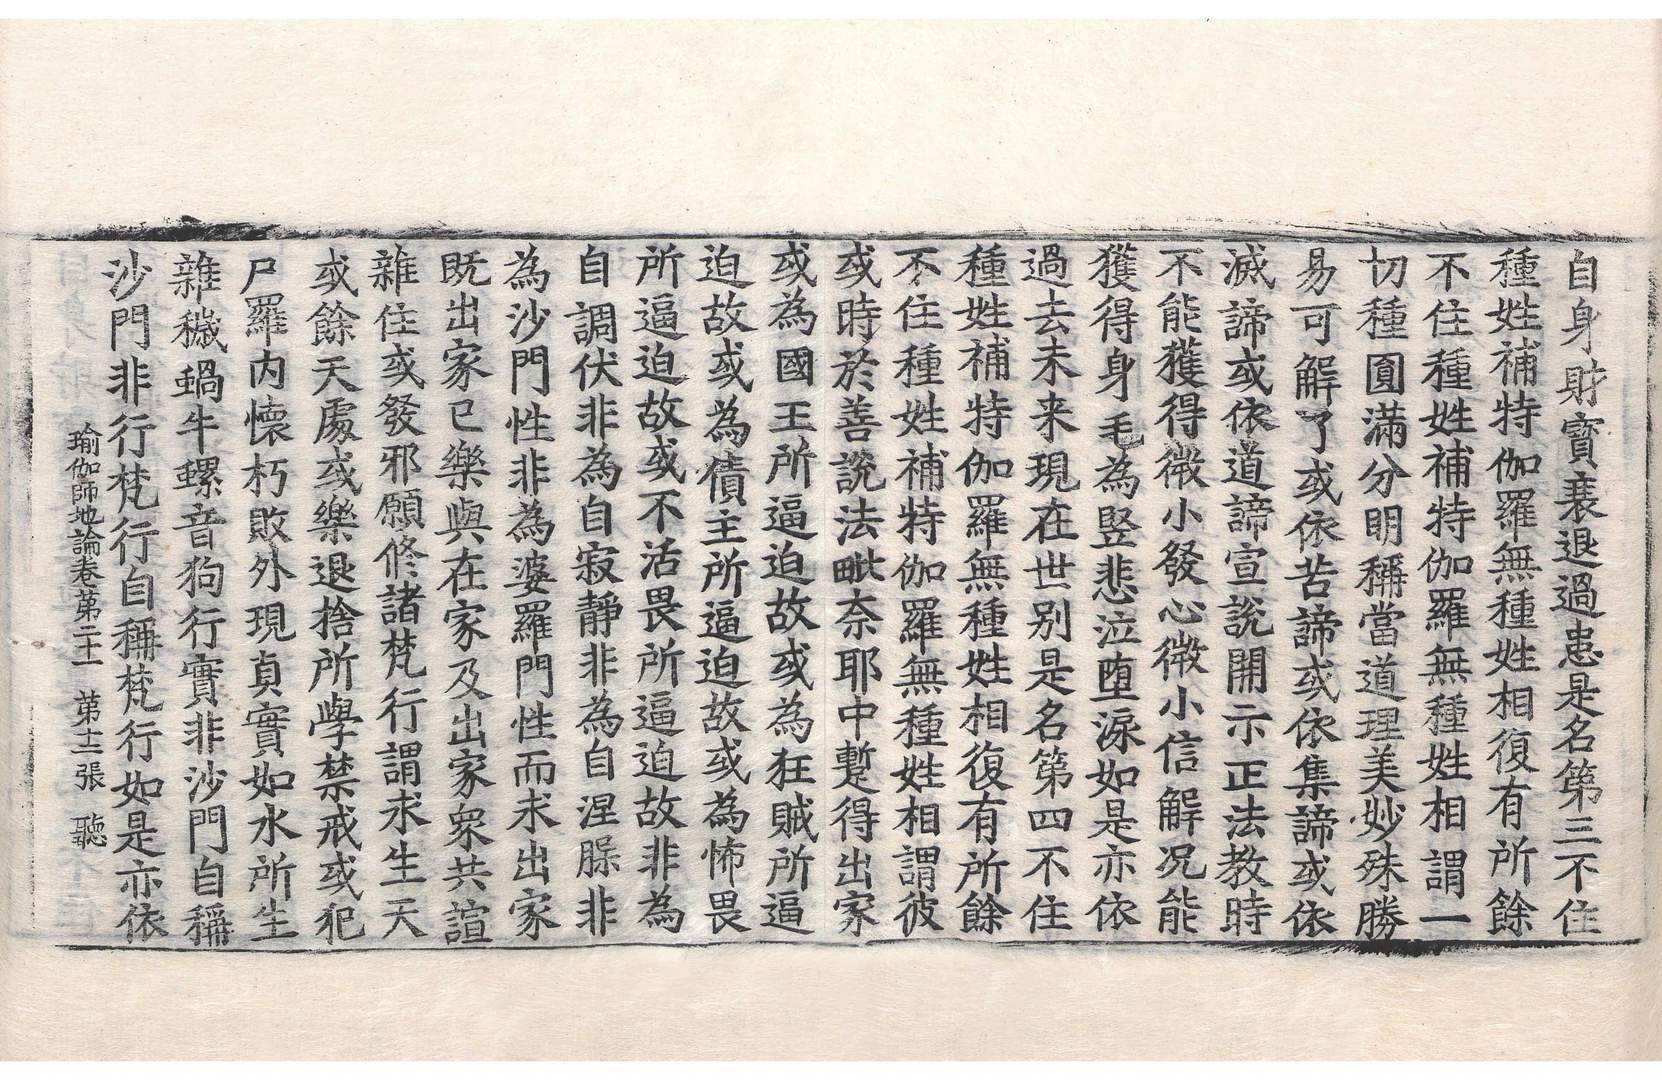 自身財寶衰退過患是名第三不住
種姓補特伽羅無種姓相復有所餘
不住種姓補特伽羅無種姓相謂一
切種圓滿分明稱當道理美妙殊勝
易可解了或依苦諦或依集諦或依
滅諦或依道諦宣說開示正法教時
不能獲得微小發心微小信解況能
獲得身毛為竪悲泣墮淚如是亦依
過去未来現在世別是名第四不住
種姓補特伽羅無種姓相復有所餘
不住種姓補特伽羅無種姓相謂彼
或時於善說法毗奈耶中蹔得出家
或為國王所逼迫故或為狂賊所逼
迫故或為債主所逼迫故或為怖畏
所逼迫故或不活畏所逼迫故非為
自調伏非為自寂靜非為自涅槃非
為沙門性非為婆羅門性而求出家
既出家已樂與在家及出家眾共諠
雜住或發邪願修諸梵行謂求生天
或餘天處或樂退捨所學禁戒或犯
尸羅內懷朽敗外現貞實如水所生
雜穢蝸牛螺音狗行實非沙門自稱
沙門非行梵行自稱梵行如是亦依
瑜伽師地論卷第二十一 第十二張 聽